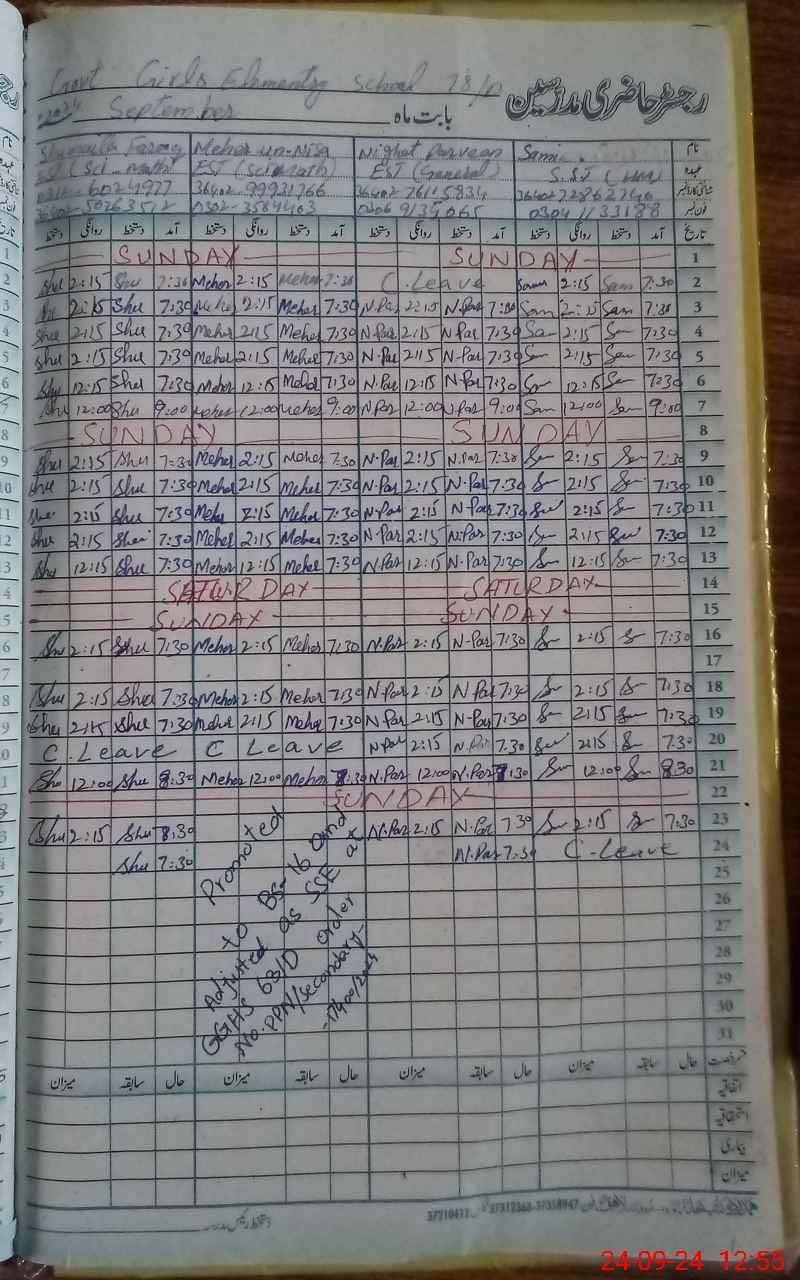 Govt Girls Elementry School 78/P
رجسٹر حاضری مدرسین
2024 September بابت ماہ
Shumaila Farooq Meher-un-Nisa Nighat Parveen Sami نام
EST (Sci-Math) EST (Sci-Math) EST (General) S.ST عہدہ
دستخط روانگی دستخط آمد دستخط روانگی دستخط آمد دستخط روانگی دستخط آمد دستخط روانگی دستخط آمد تاریخ
SUNDAY SUNDAY 1
Shu 2:15 Shu 7:30 Meher 2:15 Meher 7:30 C.Leave Sam 2:15 Sam 7:30 2
2:15 Shu 7:30 Meher 2:15 Meher 7:30 N.Par 2:15 N.Par 7:30 Sam 2:15 Sam 7:30 3
Shu 2:15 Shu 7:30 Meher 2:15 Meher 7:30 N.Par 2:15 N.Par 7:30 Sa 2:15 7:30 4
Shu 2:15 Shu 7:30 Meher 2:15 Meher 7:30 N.Par 2:15 N.Par 7:30 2:15 7:30 5
Shu 12:15 Shu 7:30 Meher 12:15 Meher 7:30 N.Par 12:15 N.Par 7:30 12:15 7:30 6
Shu 12:00 Shu 9:00 Meher 12:00 Meher 9:00 N.Par 12:00 N.Par 9:00 Sam 12:00 9:00 7
SUNDAY SUNDAY 8
Shu 2:15 Shu 7:30 Meher 2:15 Meher 7:30 N.Par 2:15 N.Par 7:30 2:15 7:30 9
Shu 2:15 Shu 7:30 Meher 2:15 Meher 7:30 N.Par 2:15 N.Par 7:30 2:15 7:30 10
2:15 Shu 7:30 Meher 2:15 Meher 7:30 N.Par 2:15 N.Par 7:30 2:15 7:30 11
Shu 2:15 Shu 7:30 Meher 2:15 Meher 7:30 N.Par 2:15 N.Par 7:30 2:15 7:30 12
Shu 12:15 Shu 7:30 Meher 12:15 Meher 7:30 N.Par 12:15 N.Par 7:30 12:15 7:30 13
SATURDAY SATURDAY 14
SUNDAY SUNDAY 15
Shu 2:15 Shu 7:30 Meher 2:15 Meher 7:30 N.Par 2:15 N.Par 7:30 2:15 7:30 16
17
Shu 2:15 Shu 7:30 Meher 2:15 Meher 7:30 N.Par 2:15 N.Par 7:30 2:15 7:30 18
Shu 2:15 Shu 7:30 Meher 2:15 Meher 7:30 N.Par 2:15 N.Par 7:30 2:15 7:30 19
C.Leave C Leave N.Par 2:15 N.Par 7:30 2:15 7:30 20
Shu 12:00 Shu 8:30 Meher 12:00 Meher 8:30 N.Par 12:00 N.Par 8:30 12:00 8:30 21
SUNDAY 22
Shu 2:15 Shu 8:30 N.Par 2:15 N.Par 7:30 2:15 7:30 23
Shu 7:30 N.Par 7:30 C-Leave 24
Promoted
to BS-16 and
Adjusted as SSE at
GGHS 63/D order
No.PPN/Secondary-
25
26
27
28
29
30
31
میزان سابقہ حال میزان سابقہ حال میزان سابقہ حال میزان سابقہ حال
اتفاقیہ
استحقاقیہ
بیماری
میزان
24-09-24 12:55